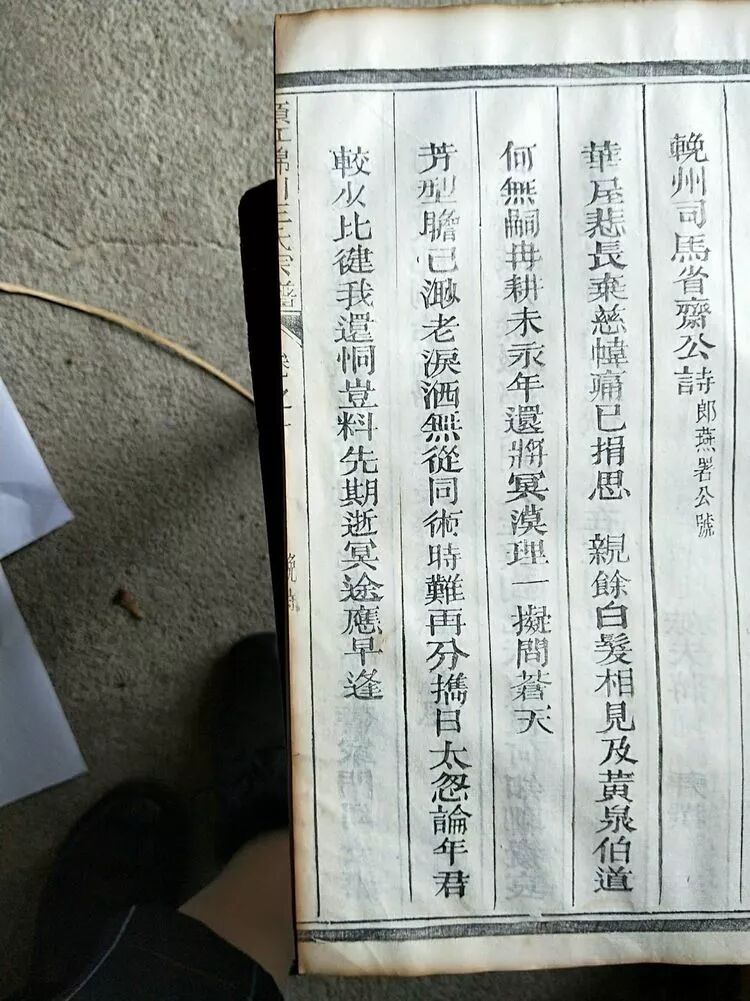 輓州司馬省齋公詩郎燕署公號
華屋悲長棄慈幃痛已捐思 親餘白髮相見及黃泉伯道
何無嗣冉耕未永年還將冥漠理一擬問蒼天
芳型瞻已渺老淚洒無從同術時難再分攜日太怱論年君
較少比健我還恫豈料先期逝冥途應早逢
錦川王氏宗譜
卷之十
輓詩